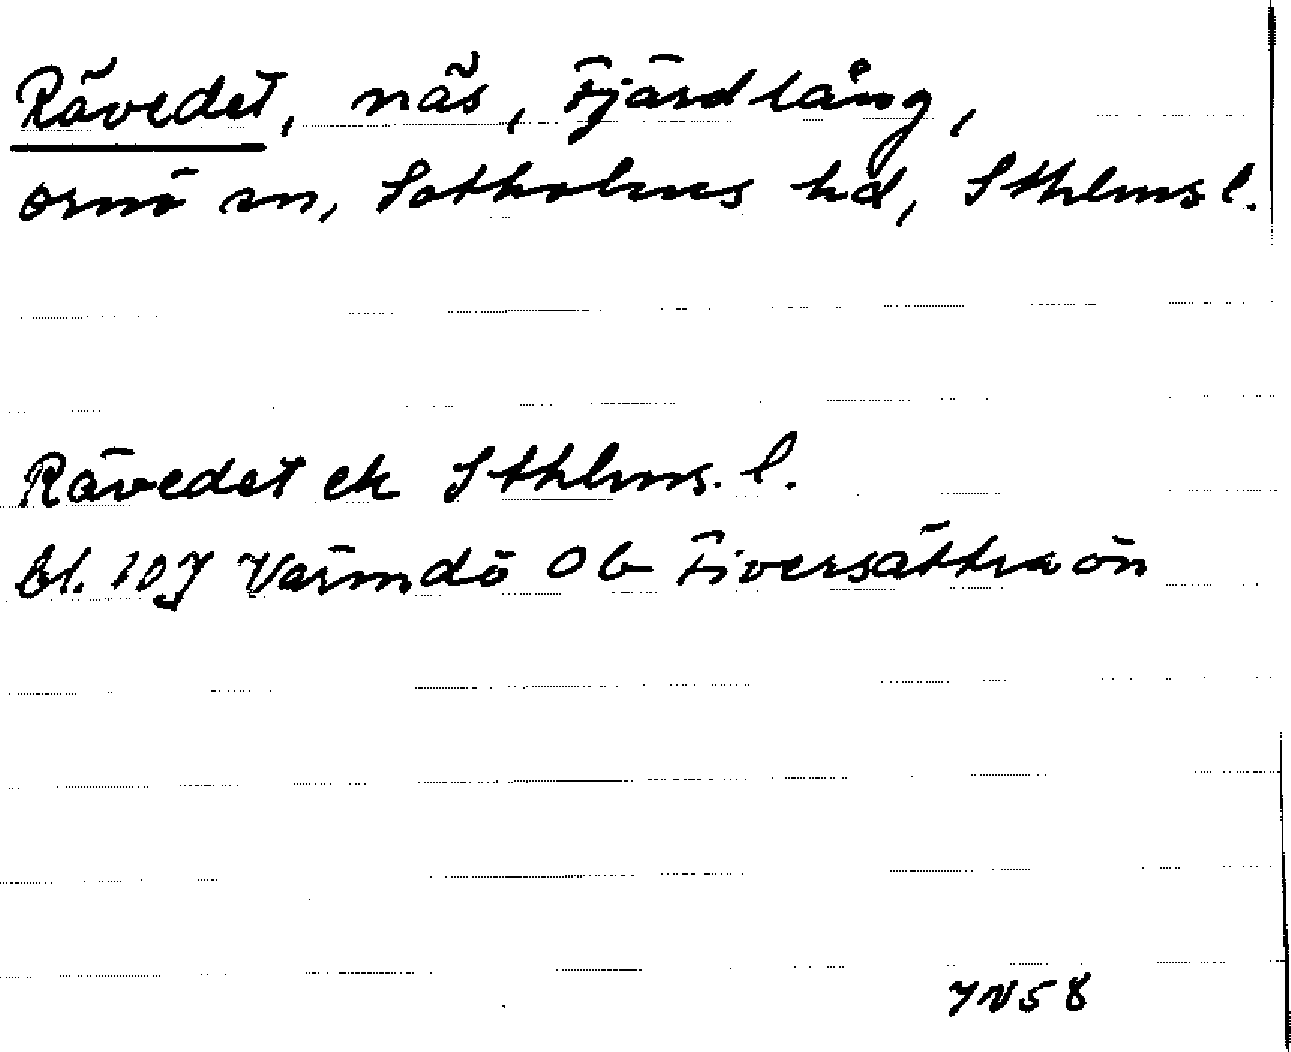 Rävedet, näs, Fjärdlång,
Ornö sn, Sotholms hd, Sthlms l.
Rävedet ek Sthlms. l.
bl. 10J Värmdö Ob Fiversättraön